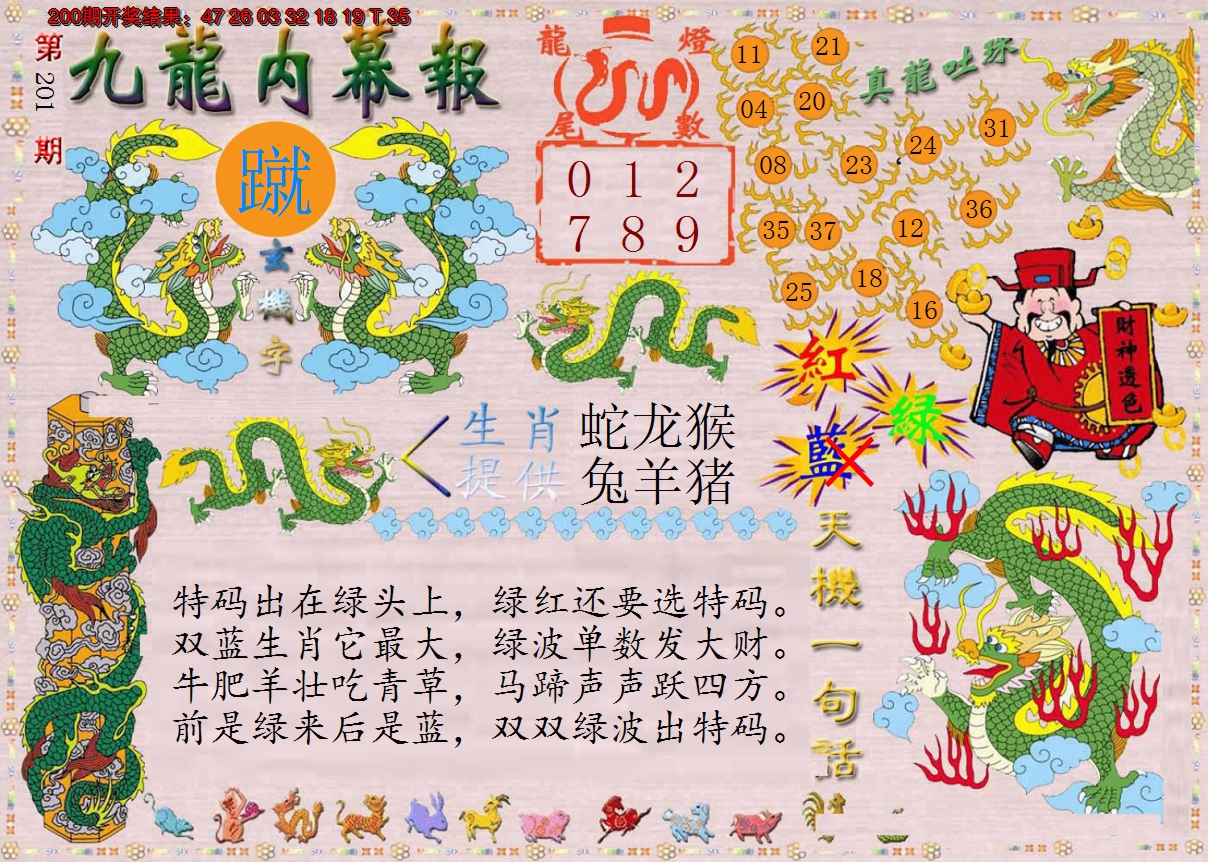 200期开奖结果：47 26 03 32 18 19 T 35
第201期
九龍内幕報
蹴
玄機字
龍燈
尾數
0 1 2
7 8 9
真龍吐珠
11 21
04 20
24 31
08 23
36
35 37 12
18
25 16
財神透色
紅
绿
藍
生肖 蛇龙猴
提供 兔羊猪
天機一句话
特码出在绿头上，绿红还要选特码。
双蓝生肖它最大，绿波单数发大财。
牛肥羊壮吃青草，马蹄声声跃四方。
前是绿来后是蓝，双双绿波出特码。